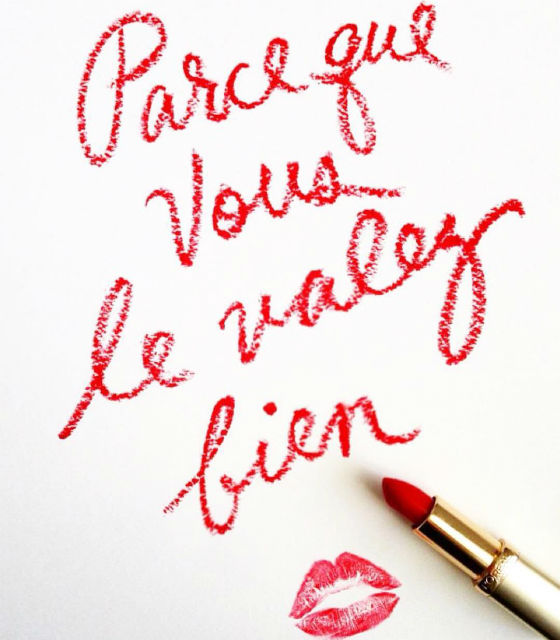 Parce que
Vous
le valez
bien
L'ORÉAL